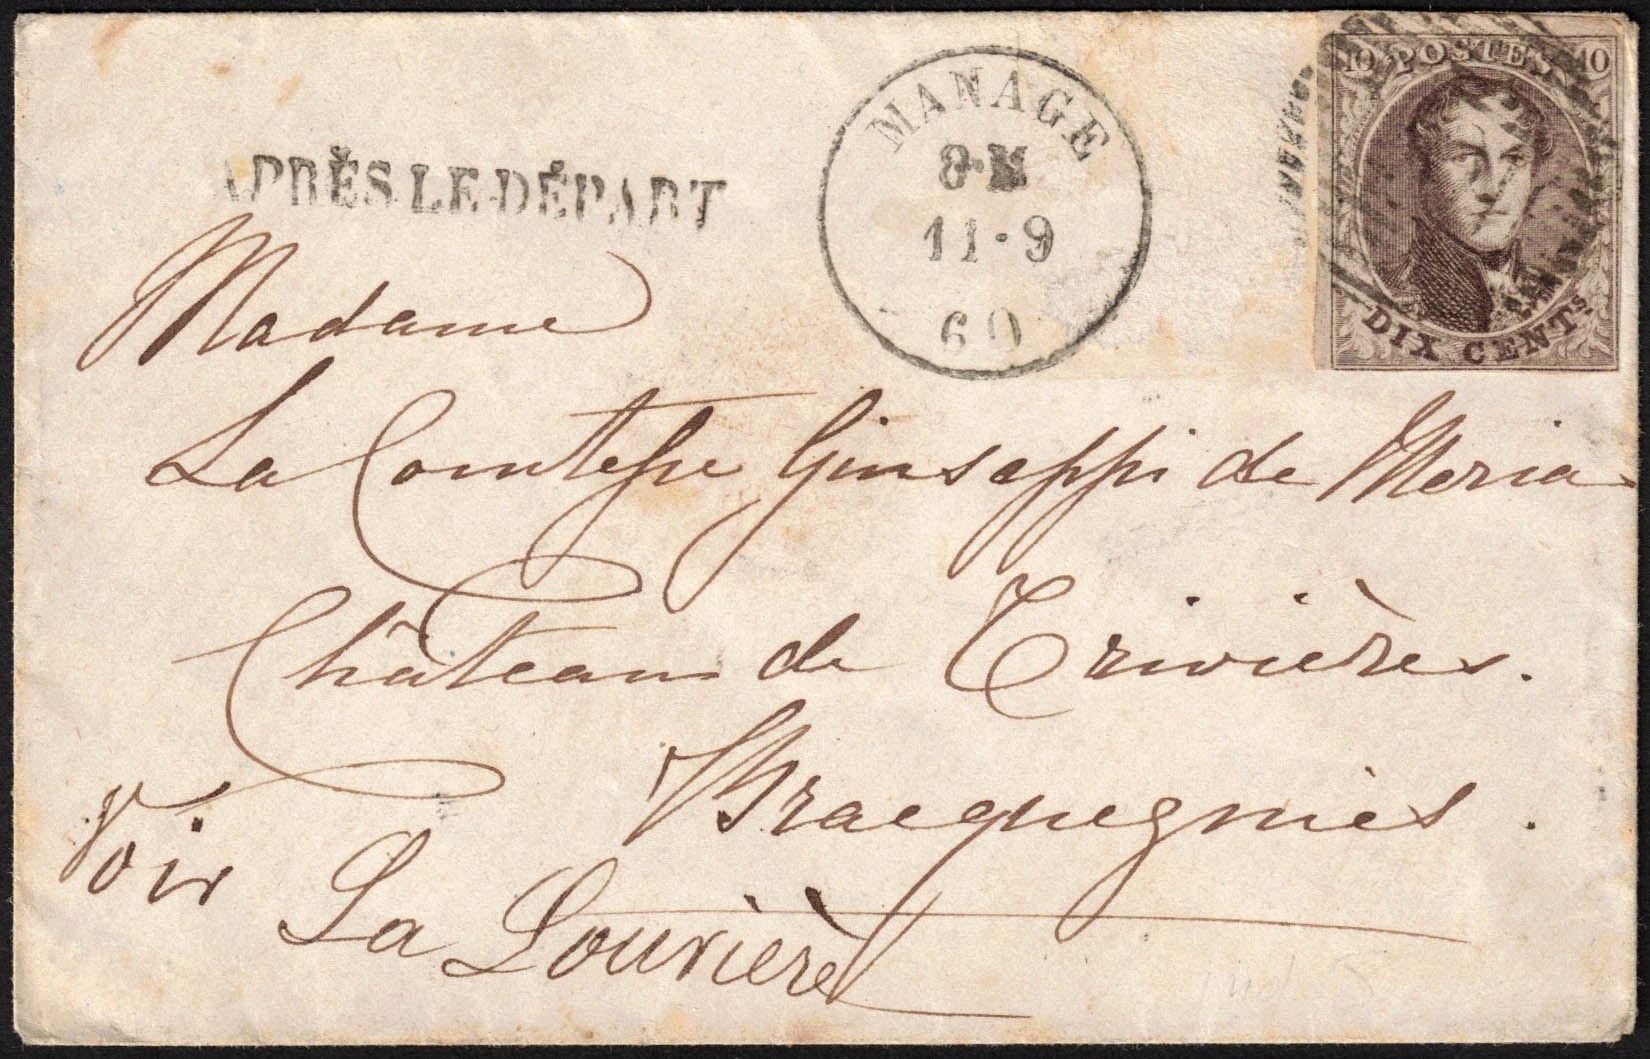 10 POSTES 10
DIX CENTS
MANAGE
8·M
11·9
60
APRÈS LE DÉPART
Madame
La Comtesse Giuseppi de Meria
Château de Trivières.
Bracquegnies.
Voir La Louvière